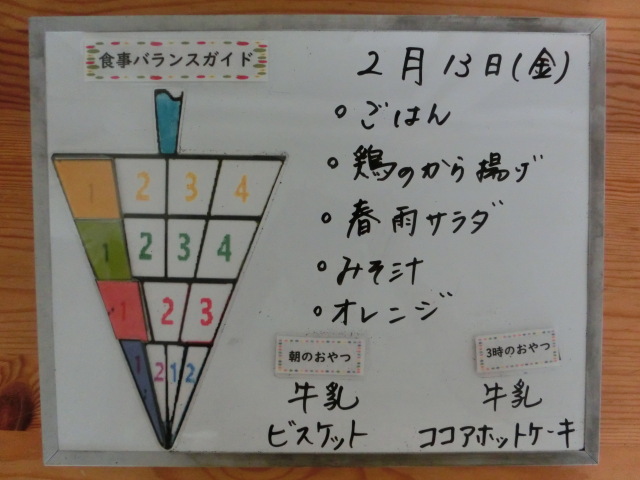 食事バランスガイド
2月13日(金)
。ごはん
。鶏のから揚げ
。春雨サラダ
。みそ汁
。オレンジ
1 2 3 4
1 2 3 4
1 2 3
1 2 1 2
朝のおやつ
牛乳
ビスケット
3時のおやつ
牛乳
ココアホットケーキ